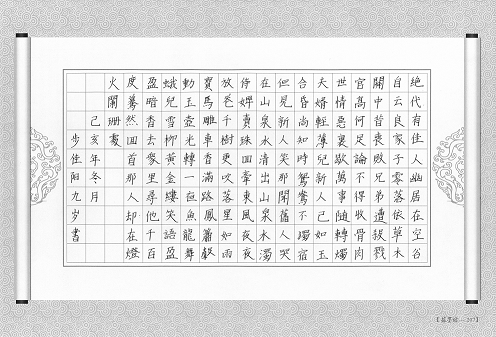 絕代有佳人幽居在空谷
自云良家子零落依草木
關中昔喪敗兄弟遭殺戮
官高何足論不得收骨肉
世情惡衰歇萬事隨轉燭
夫婿輕薄兒新人已如玉
合昏尚知時鴛鴦不獨宿
但見新人笑那聞舊人哭
在山泉水清出山泉水濁
侍婢賣珠回牽東風夜
放花千樹更吹落星如雨
寶馬雕車香滿路鳳簫聲
動玉壺光轉一夜魚龍舞
蛾兒雪柳黃金縷笑語盈
盈暗香去衆里尋他千百
度驀然回首那人却在燈
火闌珊處
己亥年冬月
步佳陽九歲書